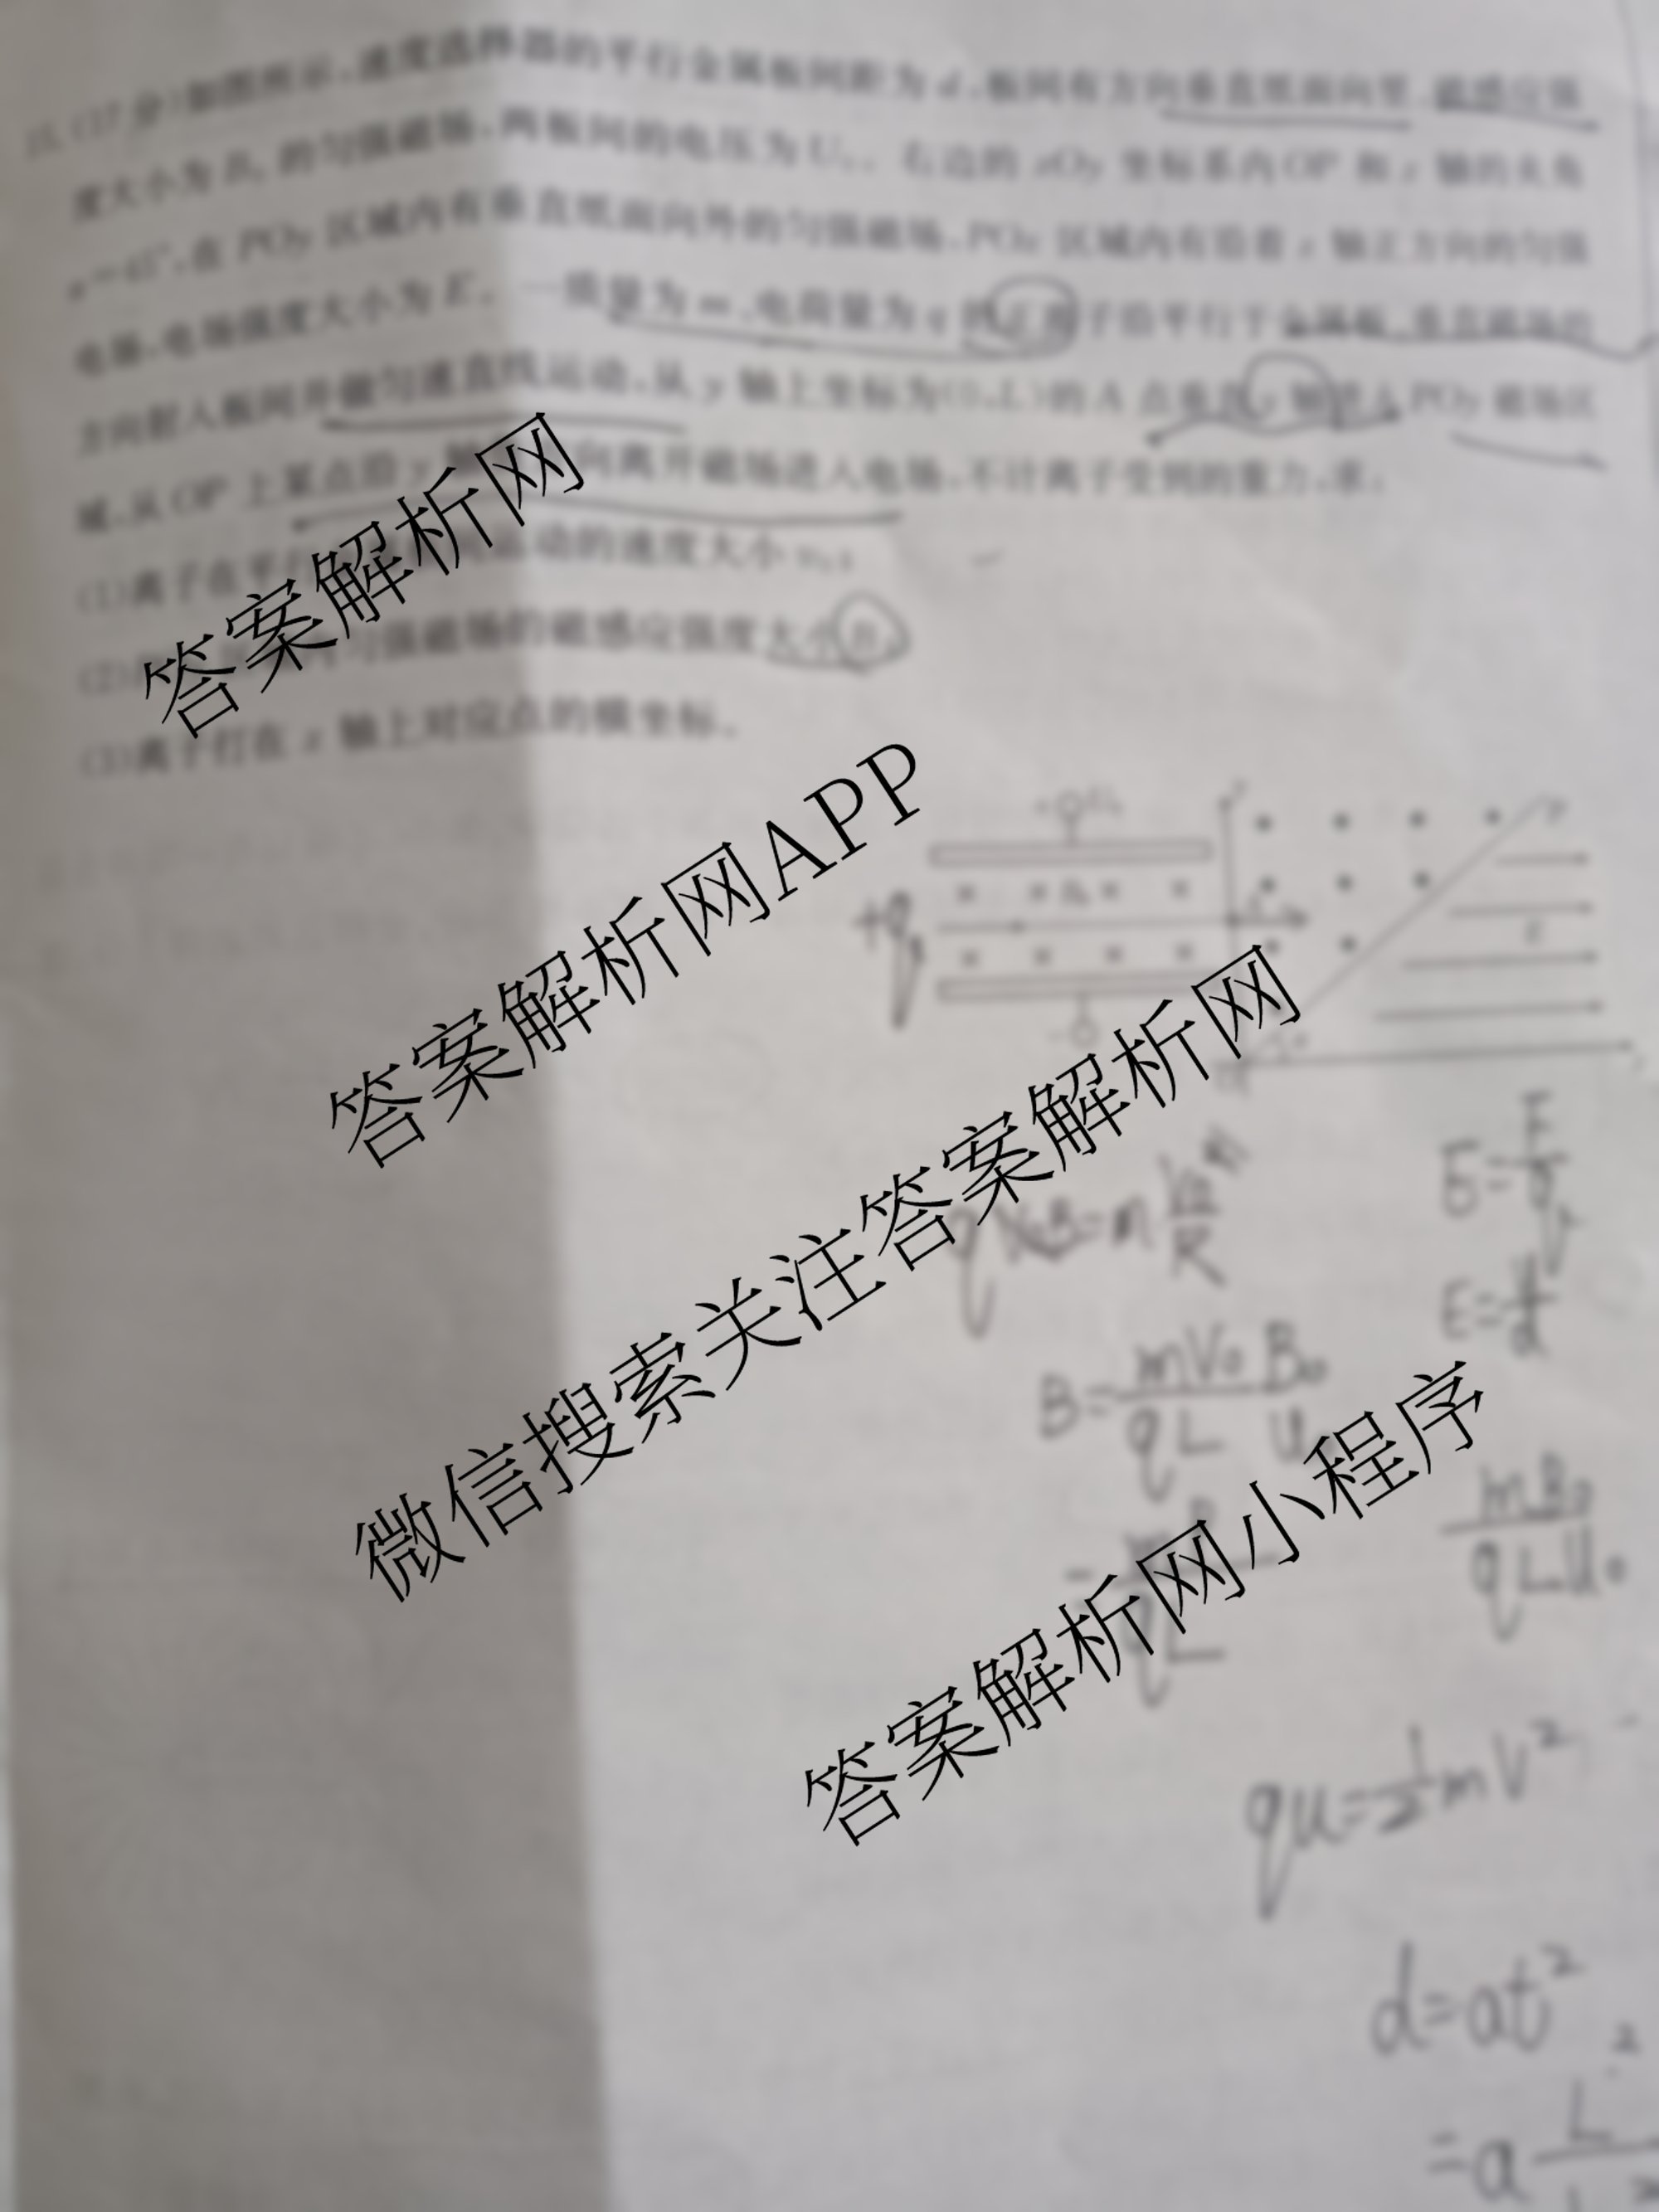 15.(17分)如图所示,速度选择器的平行金属板间距为d,板间有方向垂直纸面向里,磁感应强
度大小为B₀的匀强磁场,两板间的电压为U₀。右边的xOy坐标系内OP和x轴的夹角
α=45°,在POy区域内有垂直纸面向外的匀强磁场,POx区域内有沿着x轴正方向的匀强
电场,电场强度大小为E。一质量为m、电荷量为q的正离子沿平行于金属板、垂直磁场的
方向射入板间并做匀速直线运动,从y轴上坐标为(0,L)的A点垂直y轴进入POy磁场区
域,从OP上某点沿y 向离开磁场进入电场,不计离子受到的重力,求:
(1)离子在平 运动的速度大小v₀;
(2) 匀强磁场的磁感应强度大小B;
(3)离子打在x轴上对应点的横坐标。
答案解析网
+ U₀
P
× × B₀ × ×
+q
E
× × × ×
答案解析网APP
E=F/q
E=U/d
微信搜索关注答案解析网
B= mV₀ B₀ / qL U
mB₀ / qLU₀
答案解析网小程序
qU=½mV²
d=at²
=a L